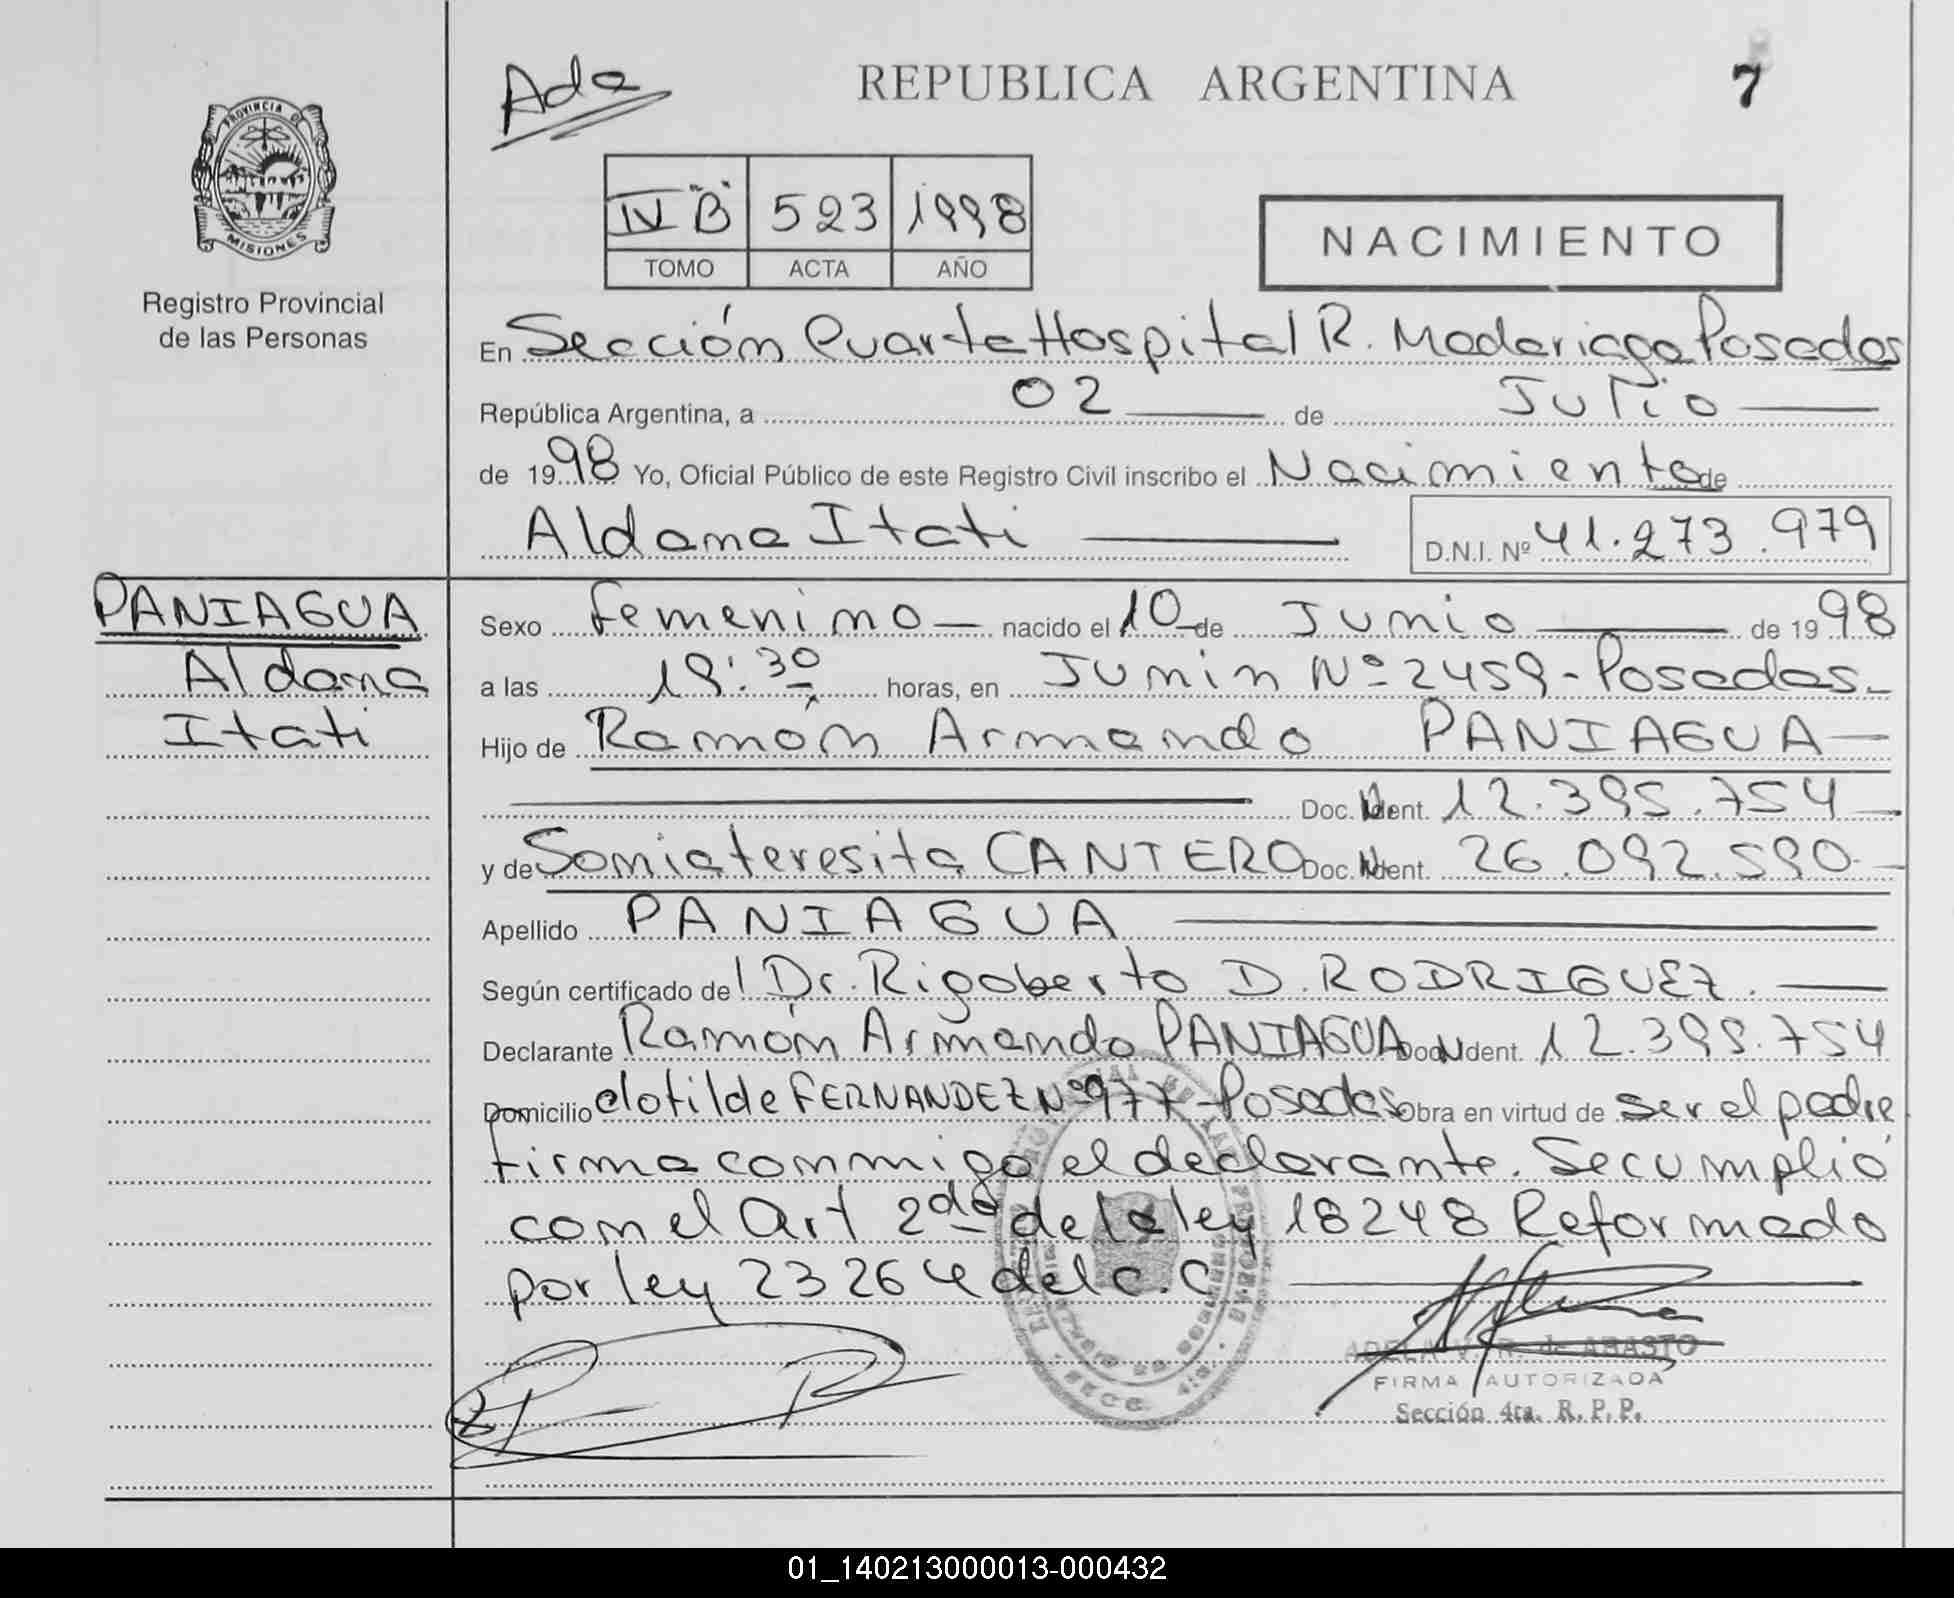 Ada
REPUBLICA ARGENTINA
7
PROVINCIA DE
MISIONES
Registro Provincial
de las Personas
IV "B" 523 1998
TOMO ACTA AÑO
NACIMIENTO
En Sección Cuarta Hospital R. Madariaga Posadas
República Argentina, a 02 de Julio
de 1998 Yo, Oficial Público de este Registro Civil inscribo el Nacimiento de
Aldana Itati D.N.I. Nº 41.273.979
PANIAGUA
Aldana
Itati
Sexo femenino nacido el 10 de Junio de 1998
a las 19:30 horas, en Junin Nº 2459 - Posadas
Hijo de Ramón Armando PANIAGUA
Doc. Ident. 12.395.754
y de Sonia teresita CANTERO Doc. Ident. 26.092.590
Apellido PANIAGUA
Según certificado del Dr. Rigoberto D. RODRIGUEZ.
Declarante Ramón Armando PANIAGUA Doc. Ident. 12.395.754
Domicilio Clotilde FERNANDEZ Nº 977 - Posadas Obra en virtud de ser el padre
firma conmigo el declarante. Se cumplió
con el Art 2do de la ley 18248 Reformado
por ley 23264 del C.C
ADELA V. R. de ABASTO
FIRMA AUTORIZADA
Sección 4ta. R. P. P.
01_140213000013-000432